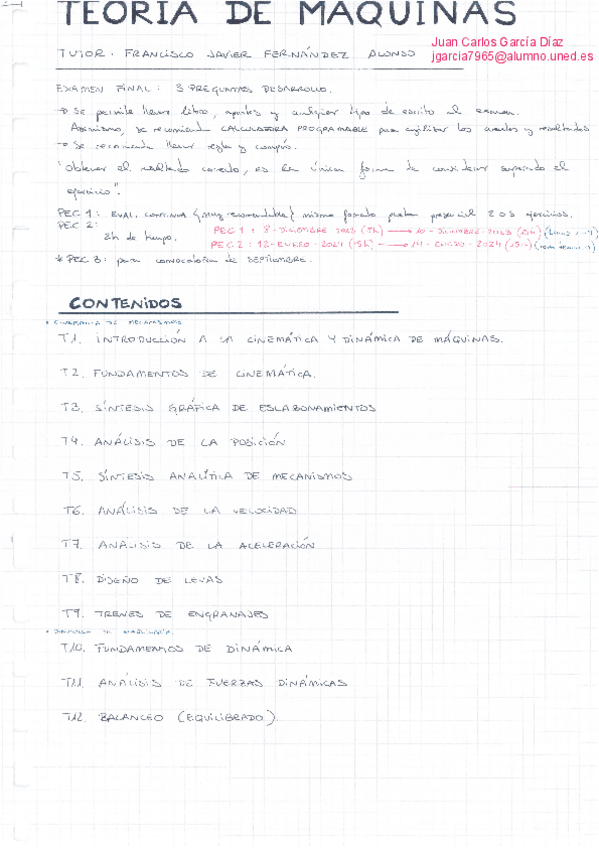 TEORIA DE MAQUINAS
Juan Carlos García Díaz
TUTOR. FRANCISCO JAVIER FERNÁNDEZ ALONSO
jgarcia7965@alumno.uned.es
EXAMEN FINAL: 3 PREGUNTAS DESARROLLO.
→ Se permite llevar libro, apuntes y cualquier tipo de escrito al examen.
Asimismo, se recomienda CALCULADORA PROGRAMABLE para agilizar los y resultados
→ Se recomienda llevar regla y compás.
"Obtener el resultado correcto, es la única forma de considerar superado el
ejercicio".
PEC 1: EVAL. CONTINUA (muy recomendable) mismo formato prueba presencial 2 o 3 ejercicios.
PEC 2:
2h de tiempo.
PEC 1: 8-DICIEMBRE 2023 → 10-DICIEMBRE-2023
PEC 2: 12-ENERO-2024 → 14-ENERO-2024
* PEC 3: para convocatoria de SEPTIEMBRE.
CONTENIDOS
* CINEMÁTICA DE MECANISMOS
T1. INTRODUCCIÓN A LA CINEMÁTICA Y DINÁMICA DE MÁQUINAS.
T2. FUNDAMENTOS DE CINEMÁTICA.
T3. SÍNTESIS GRÁFICA DE ESLABONAMIENTOS
T4. ANÁLISIS DE LA POSICIÓN
T5. SÍNTESIS ANALÍTICA DE MECANISMOS
T6. ANÁLISIS DE LA VELOCIDAD
T7. ANÁLISIS DE LA ACELERACIÓN
T8. DISEÑO DE LEVAS
T9. TRENES DE ENGRANAJES
* DINÁMICA DE MAQUINARIA
T10. FUNDAMENTOS DE DINÁMICA
T11. ANÁLISIS DE FUERZAS DINÁMICAS
T12. BALANCEO (EQUILIBRADO).